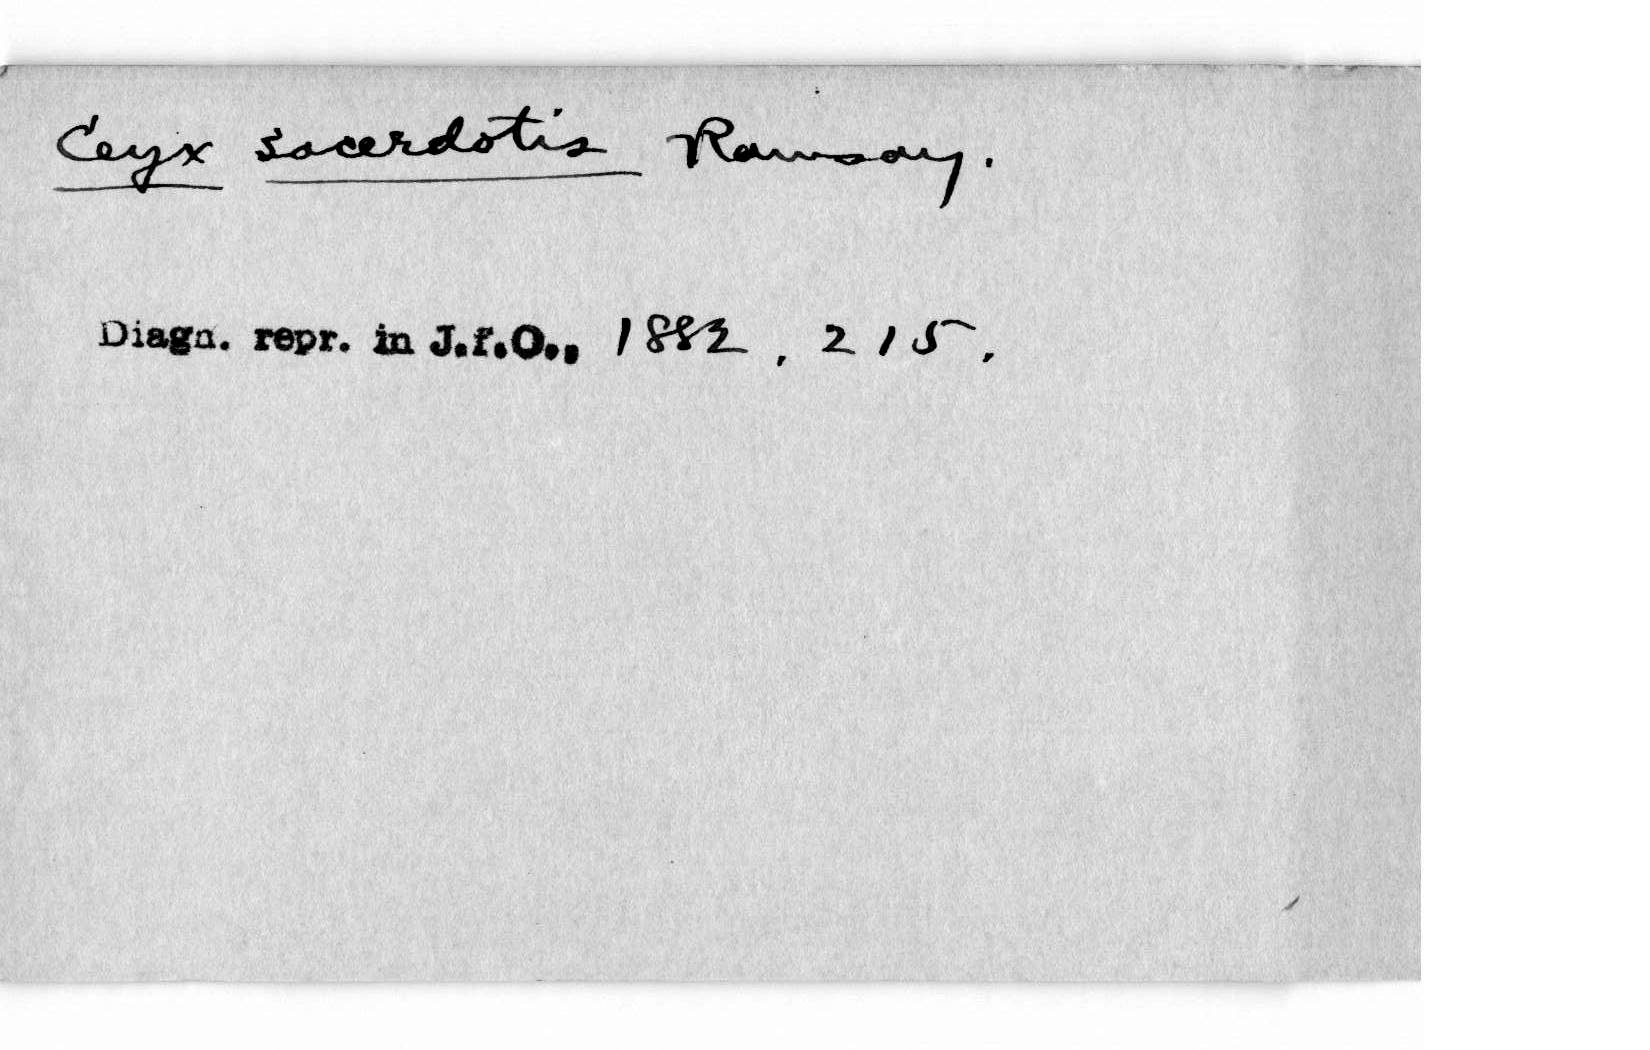 Ceyx sacerdotis Ramsay.
Diagn. repr. in J.f.O., 1882, 215.